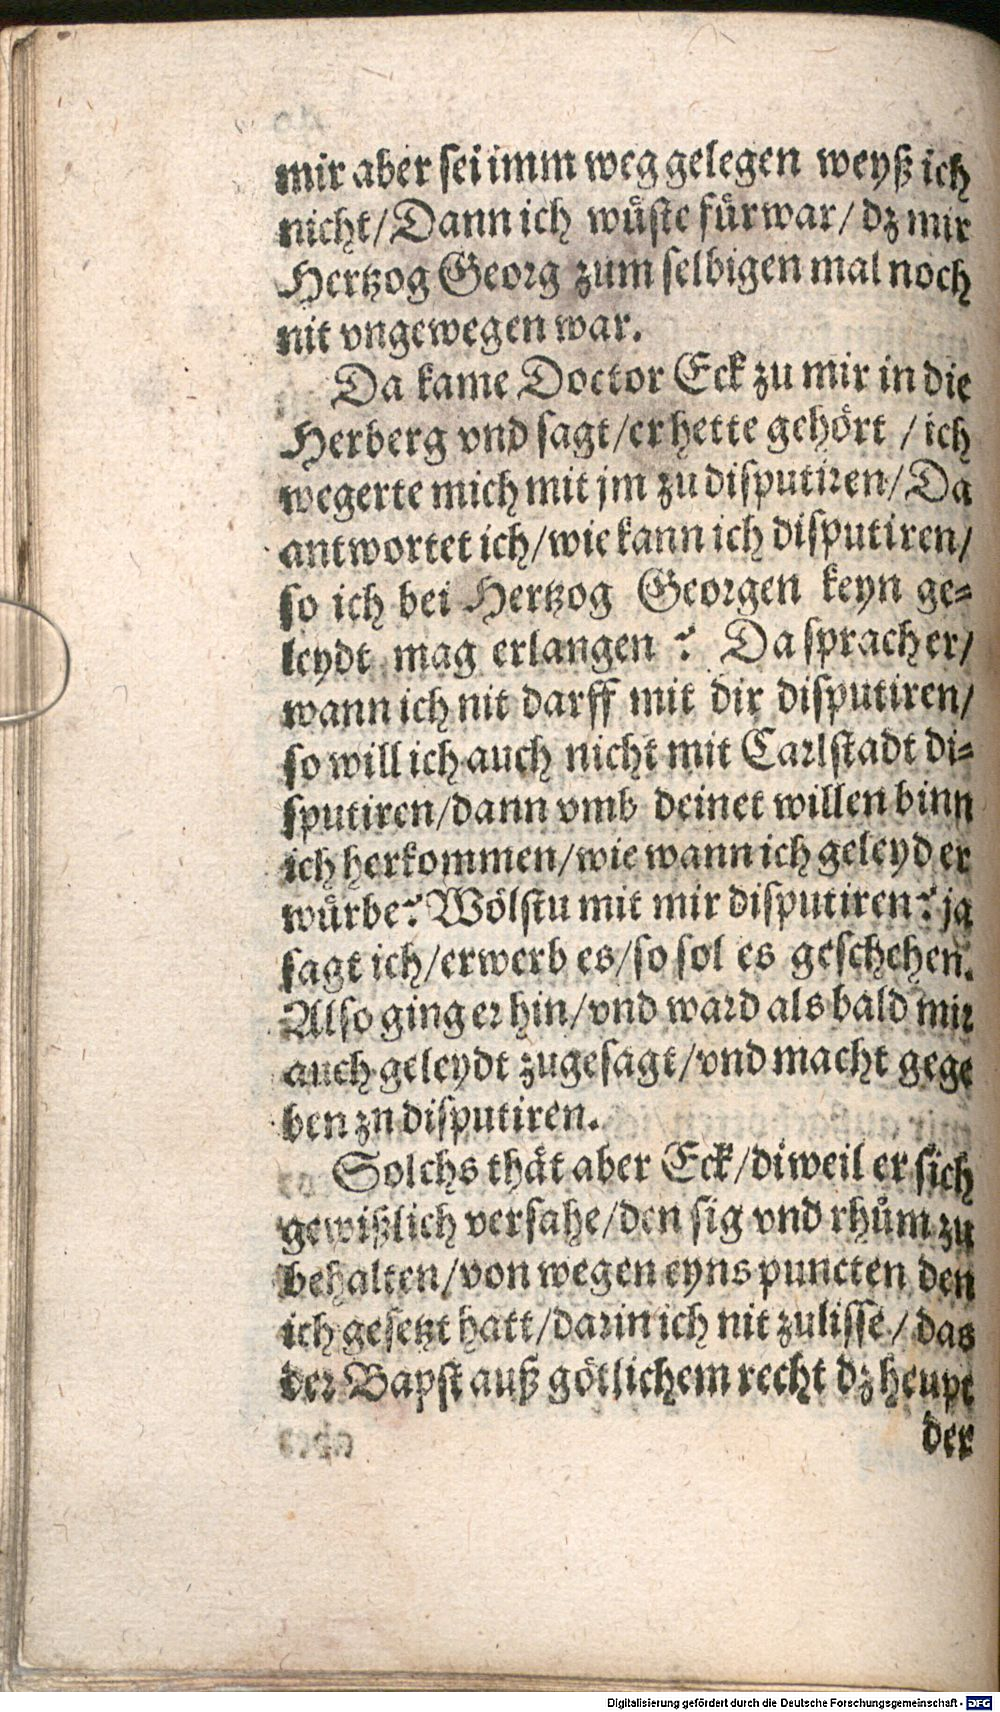 mir aber sei imm weg gelegen weyß ich
nicht/Dann ich wüste fürwar/ dz mir
Hertzog Georg zum selbigen mal noch
nit vngewegen war.
Da kame Doctor Eck zu mir in die
Herberg vnd sagt/er hette gehört /ich
wegerte mich mit jm zu disputiren/Da
antwortet ich/wie kann ich disputiren/
so ich bei Hertzog Georgen keyn ge-
leydt mag erlangen ? Da sprach er/
wann ich nit darff mit dir disputiren/
so will ich auch nicht mit Carlstadt di-
sputiren/dann vmb deinet willen binn
ich herkommen/wie wann ich geleyd er
würbe? Wölstu mit mir disputiren? ja
sagt ich/erwerb es/so sol es geschehen.
Also ging er hin/vnd ward als bald mir
auch geleydt zugesagt/vnd macht gege
ben zn disputiren.
Solchs thät aber Eck/diweil er sich
gewißlich versahe/den sig vnd rhům zu
behalten/von wegen eyns puncten den
ich gesetzt hatt/darin ich nit zulisse/das
der Bapst auß götlichem recht dz heupt
der
Digitalisierung gefördert durch die Deutsche Forschungsgemeinschaft - DFG